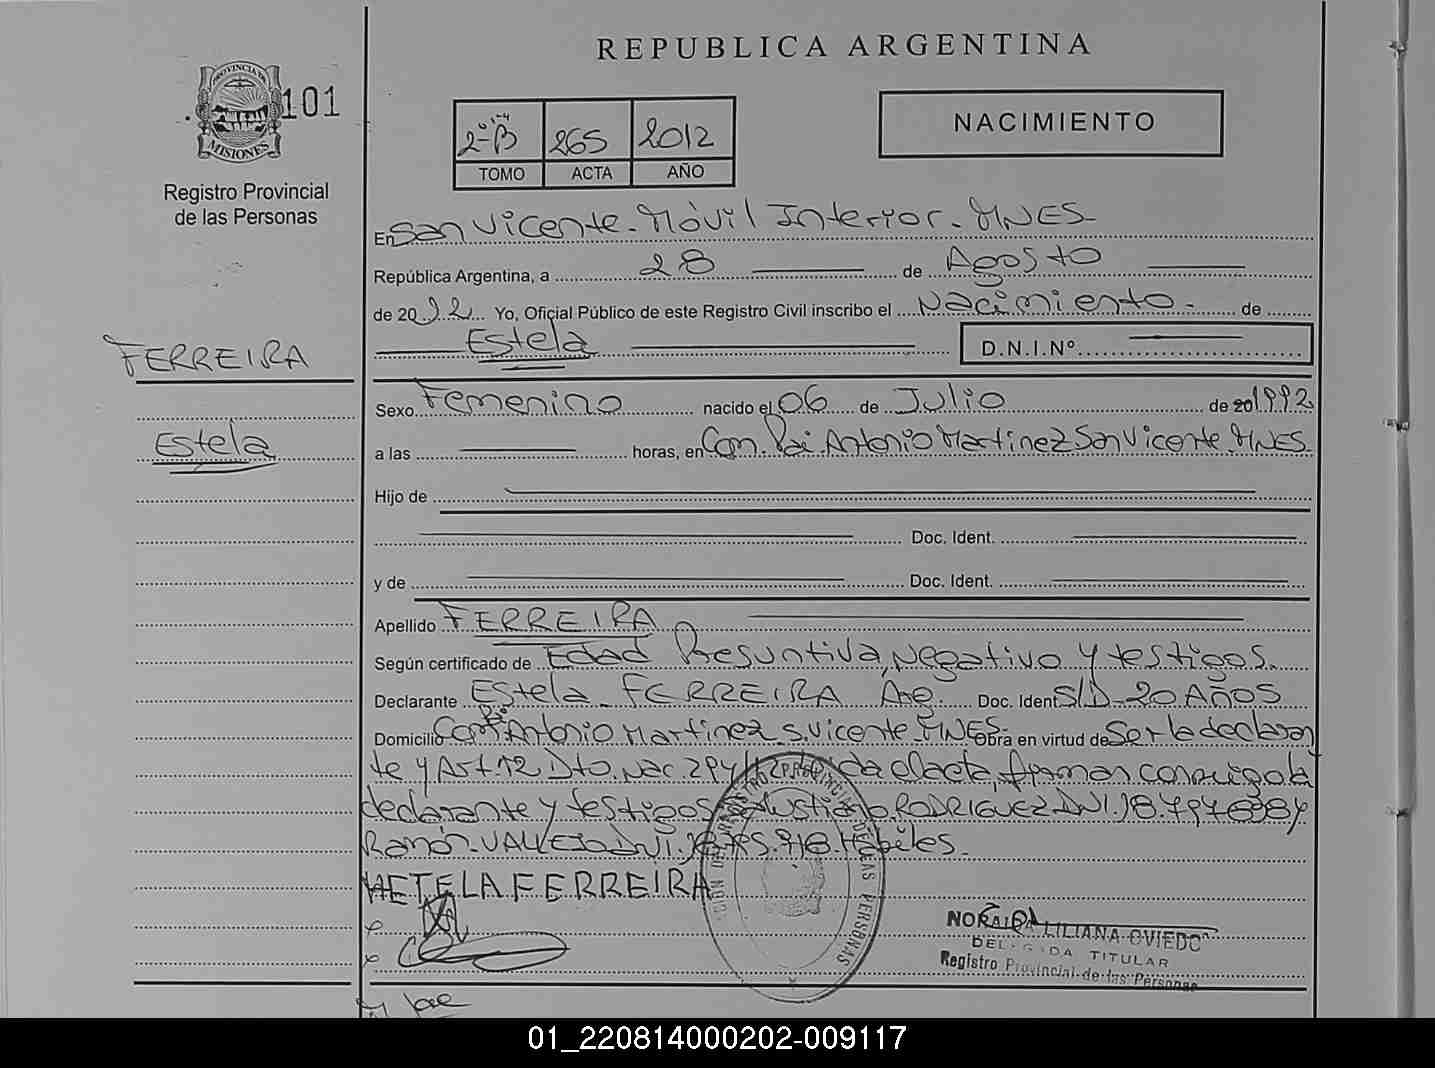 REPUBLICA ARGENTINA
PROVINCIA DE
MISIONES
101
Registro Provincial
de las Personas
2º-B 265 2012
TOMO ACTA AÑO
NACIMIENTO
En San Vicente-Móvil Interior-MNES-
República Argentina, a 28 de Agosto
de 2012 Yo, Oficial Público de este Registro Civil inscribo el Nacimiento- de
Estela D.N.I.Nº
FERREIRA
Estela
Sexo Femenino nacido el 06 de Julio de 20 1992
a las horas, en Com. Pai Antonio Martinez San Vicente-MNES.
Hijo de
Doc. Ident.
y de Doc. Ident.
Apellido FERREIRA
Según certificado de Edad Presuntiva, Negativo y testigos.
Declarante Estela FERREIRA Arg. Doc. Ident S/D-20 Años
Domicilio Com. Pai Antonio Martinez S. Vicente-MNES- Obra en virtud de Ser la declaran
te y Art. 12 Dto. Nac. 294/12 el acta, firman conmigo la
declarante y testigos RODRIGUEZ DNI.
Ramón-VALLEJO DNI. Hábiles-
HETELA FERREIRA
REGISTRO PROVINCIAL DE LAS PERSONAS
LILIANA OVIEDO
TITULAR
Registro Provincial de las Personas
01_220814000202-009117